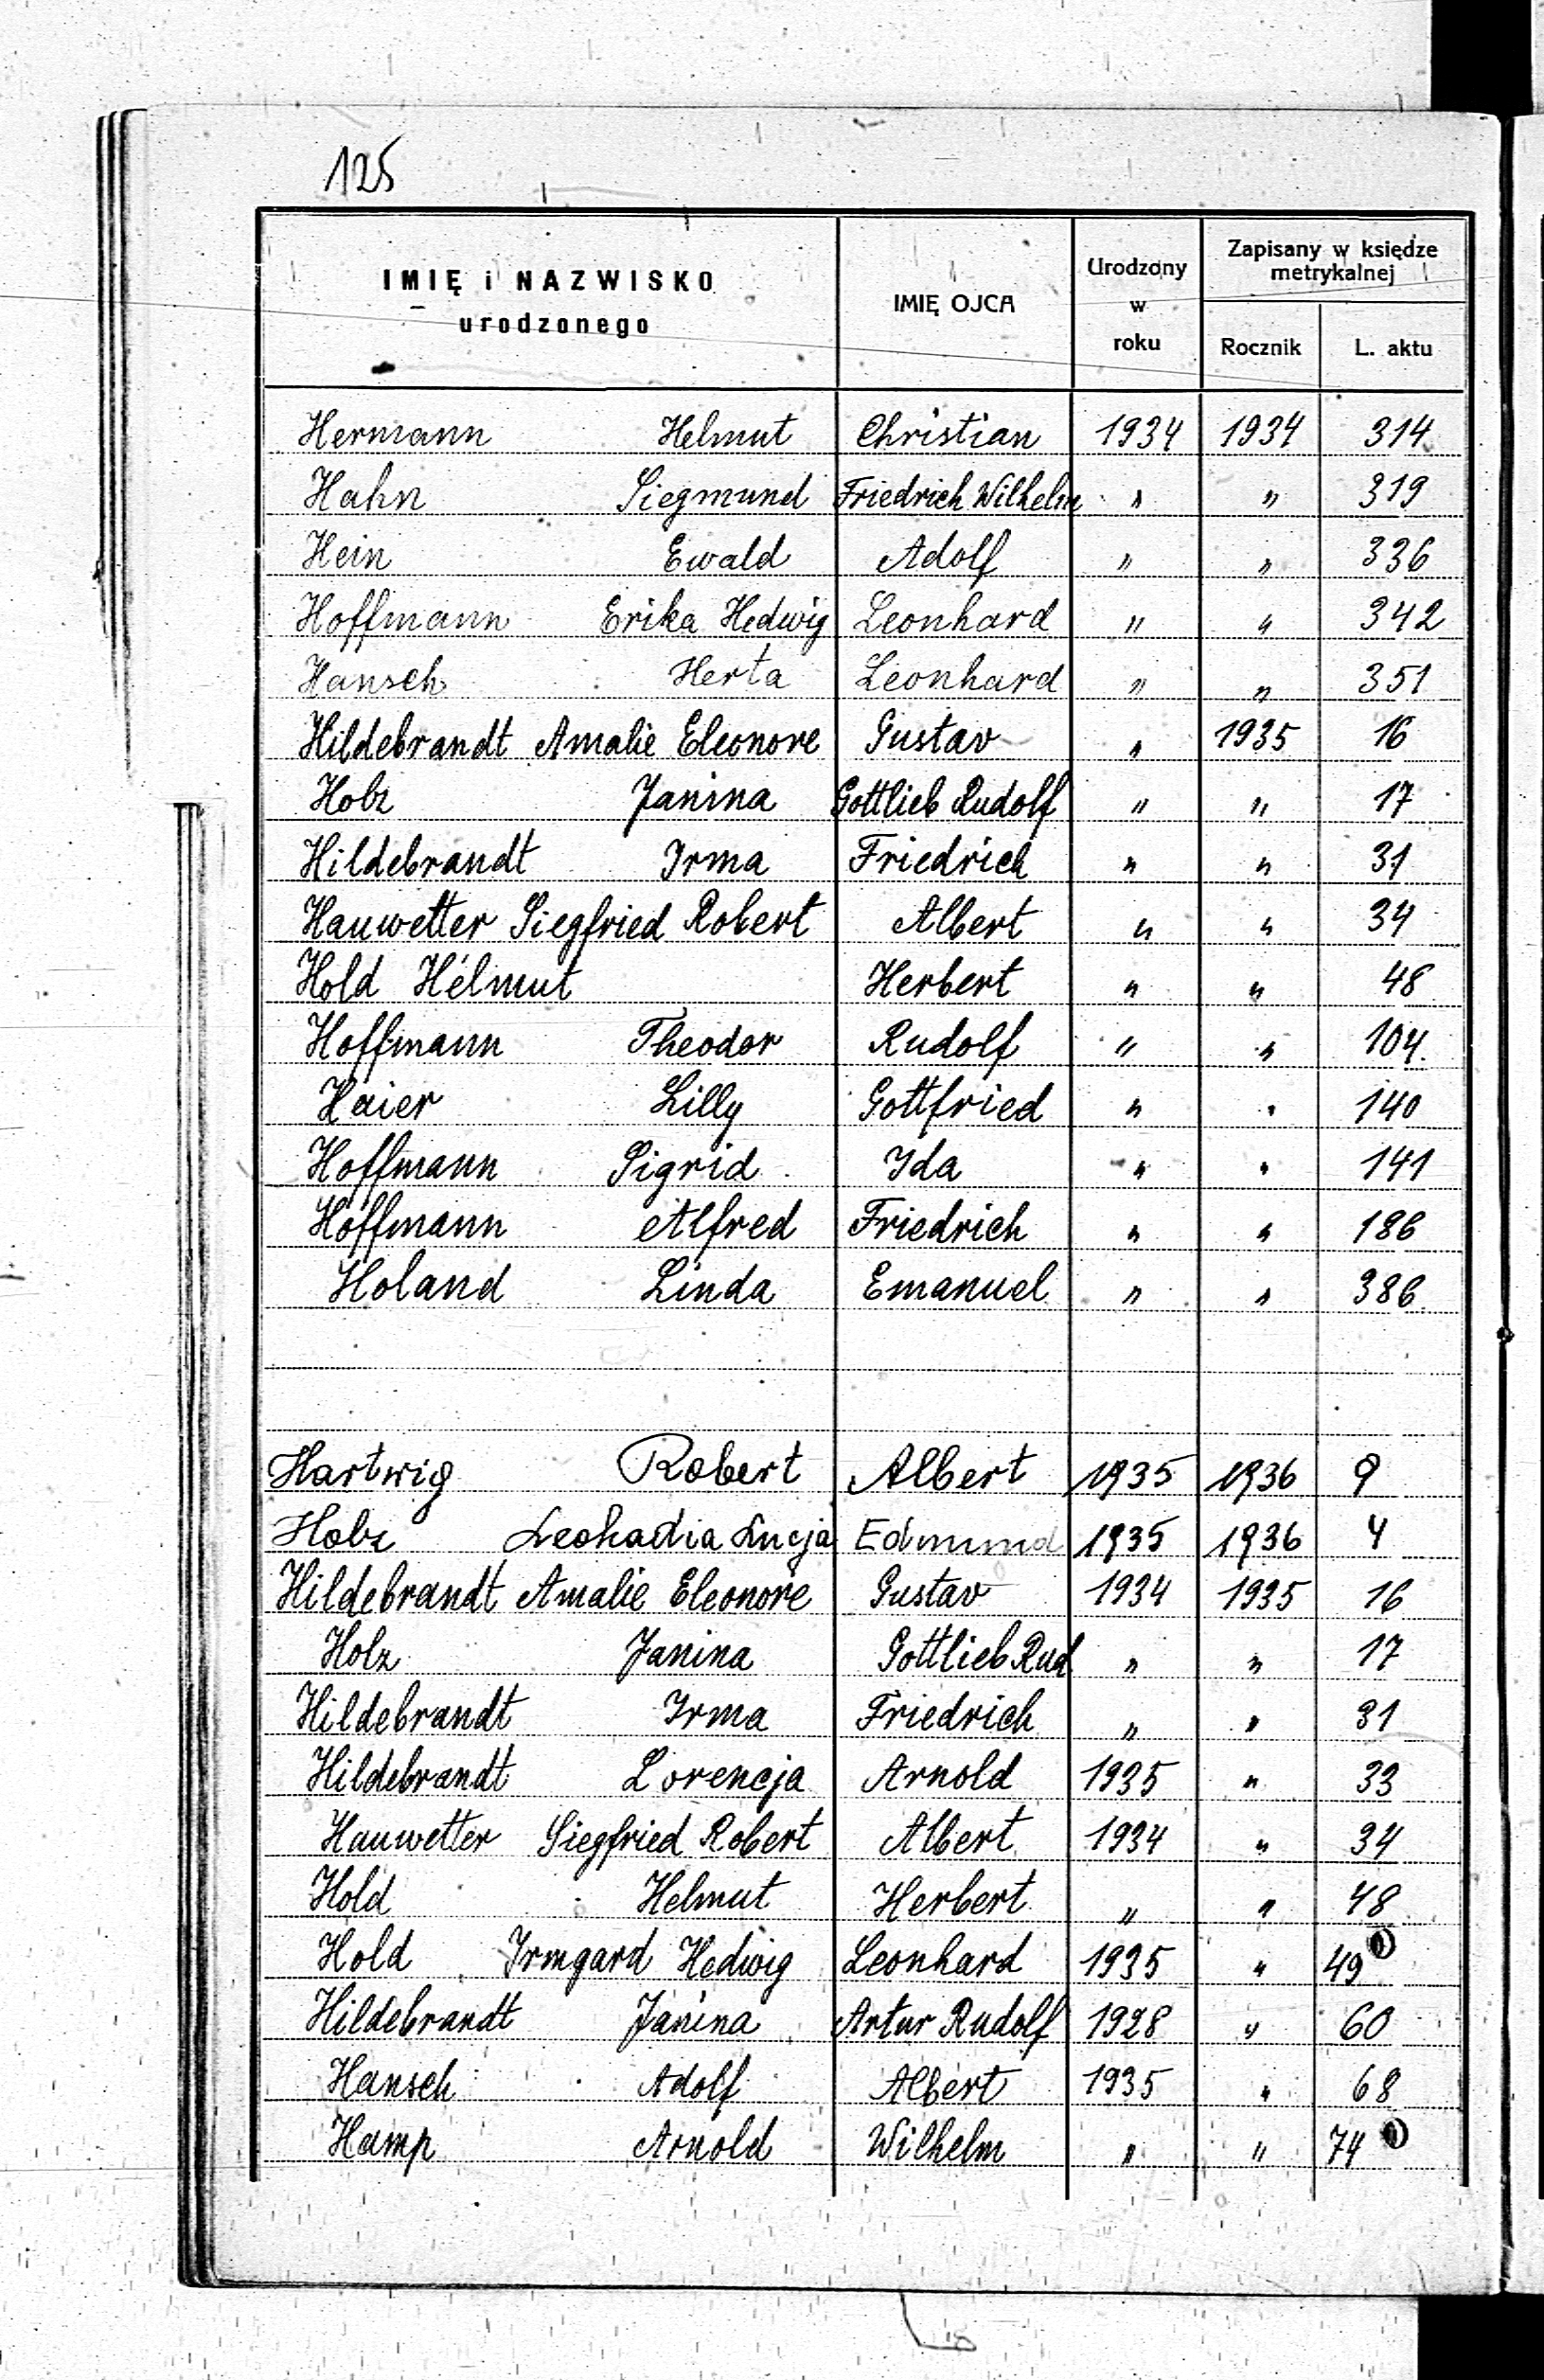 125
IMIĘ i NAZWISKO urodzonego IMIĘ OJCA Urodzony w roku Zapisany w księdze metrykalnej Rocznik L. aktu
Hermann Helmut Christian 1934 1934 314
Hahn Siegmund Friedrich Wilhelm " " 319
Hein Ewald Adolf " " 336
Hoffmann Erika Hedwig Leonhard " " 342
Hansch Herta Leonhard " " 351
Hildebrandt Amalie Eleonore Gustav " 1935 16
Holz Janina Gottlieb Rudolf " " 17
Hildebrandt Irma Friedrich " " 31
Hauwetter Siegfried Robert Albert " " 34
Hold Helmut Herbert " " 48
Hoffmann Theodor Rudolf " " 104
Haier Lilly Gottfried " " 140
Hoffmann Sigrid Ida " " 141
Hoffmann Alfred Friedrich " " 186
Holand Linda Emanuel " " 386
Hartwig Robert Albert 1935 1936 9
Holz Leokadia Lucja Edmund 1935 1936 4
Hildebrandt Amalie Eleonore Gustav 1934 1935 16
Holz Janina Gottlieb Rud " " 17
Hildebrandt Irma Friedrich " " 31
Hildebrandt Lorencja Arnold 1935 " 33
Hauwetter Siegfried Robert Albert 1934 " 34
Hold Helmut Herbert " " 48
Hold Irmgard Hedwig Leonhard 1935 " 49
Hildebrandt Janina Artur Rudolf 1928 " 60
Hansch Adolf Albert 1935 " 68
Hamp Arnold Wilhelm " " 74